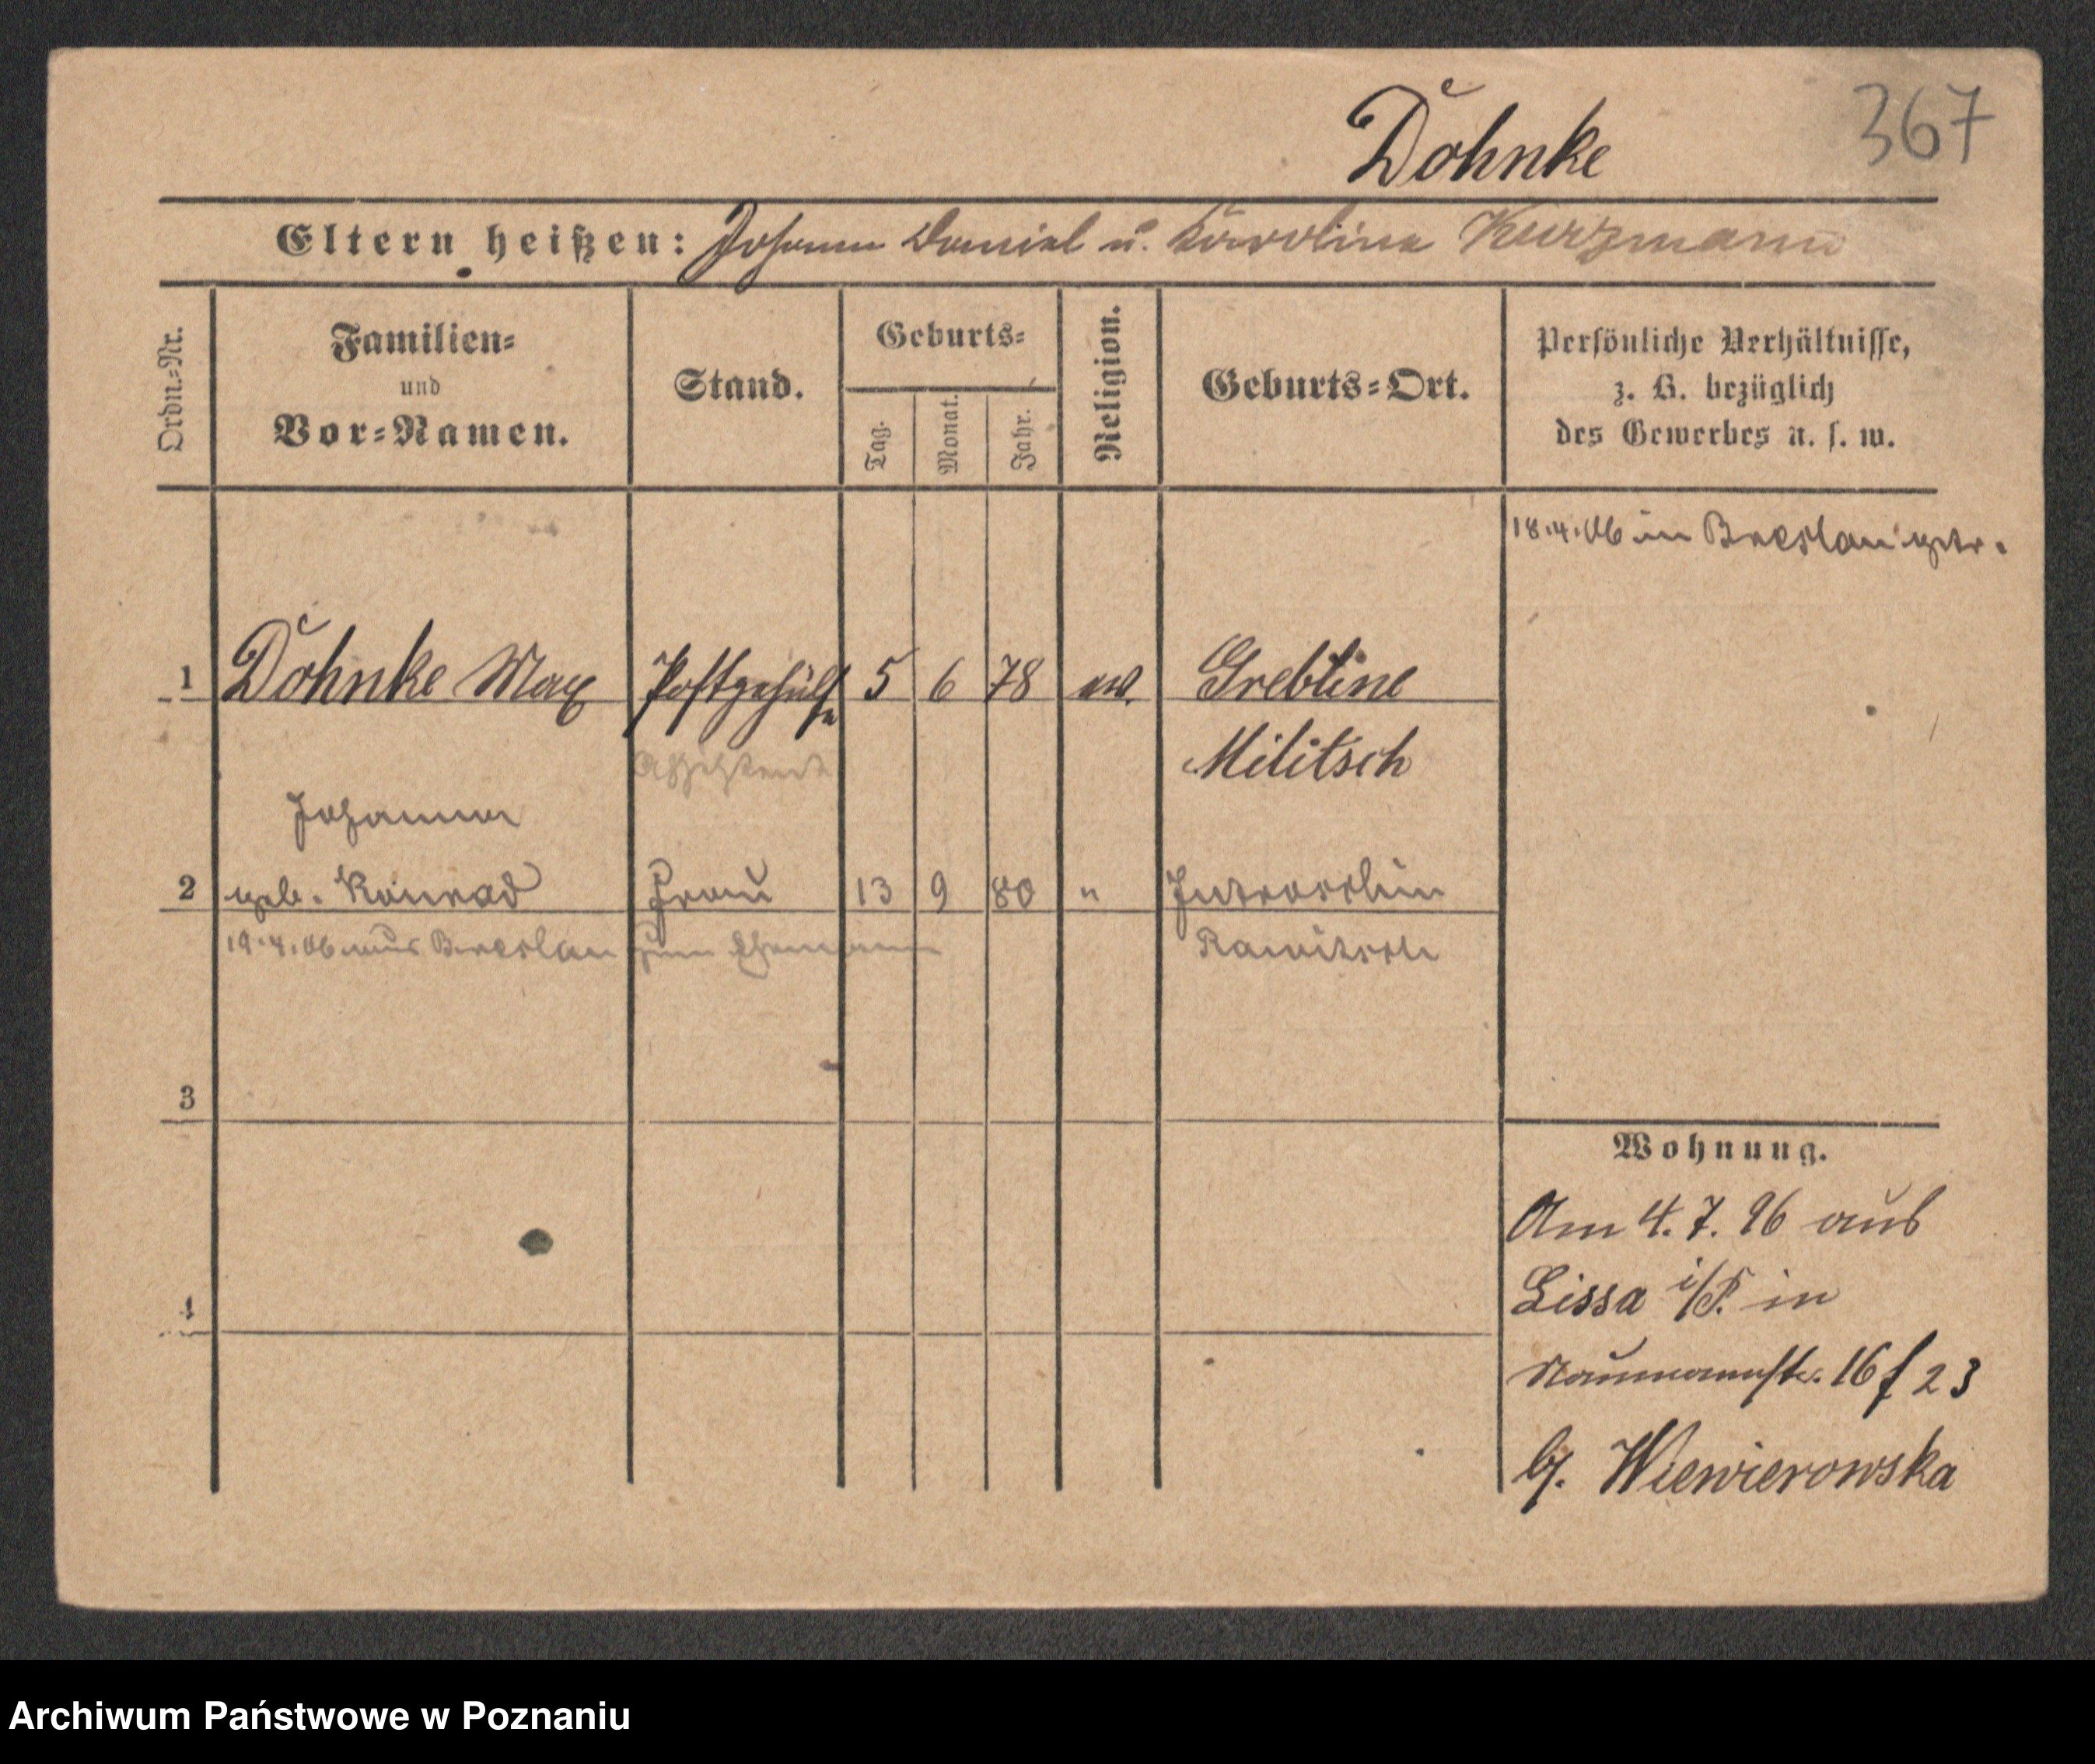 Dohnke
367
Eltern heißen: Johann Daniel u. Karoline Kurzmann
Ordn.=Nr.
Familien=
und
Vor=Namen.
Stand.
Geburts=
Tag.
Monat.
Jahr.
Religion.
Geburts=Ort.
Persönliche Verhältnisse,
z. B. bezüglich
des Gewerbes u. s. w.
18.4.06 in Breslau getr.
1 Dohnke Max Postgehülfe 5 6 78 ev. Grebline
Assistent Militsch
Johanna
2 geb. Konrad Frau 13 9 80 " Jutroschin
19.4.06 aus Breslau zum Ehemann Rawitsch
3
4
Wohnung.
Am 4.7.96 aus
Lissa i/P. in
Naumannstr. 16 f 23
b/. Wiewierowska
Archiwum Państwowe w Poznaniu